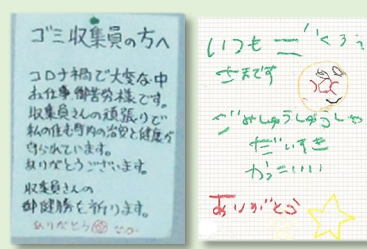 ゴミ収集員の方へ
コロナ禍で大変な中
お仕事御苦労様です。
収集員さんの頑張りで
私の住む町内の治安と健康が
守られています。
ありがとうございます。
収集員さんの
御健勝を祈ります。
ありがとう
いつもごくろう
さまです
だいすき
かっこいい
ありがとう